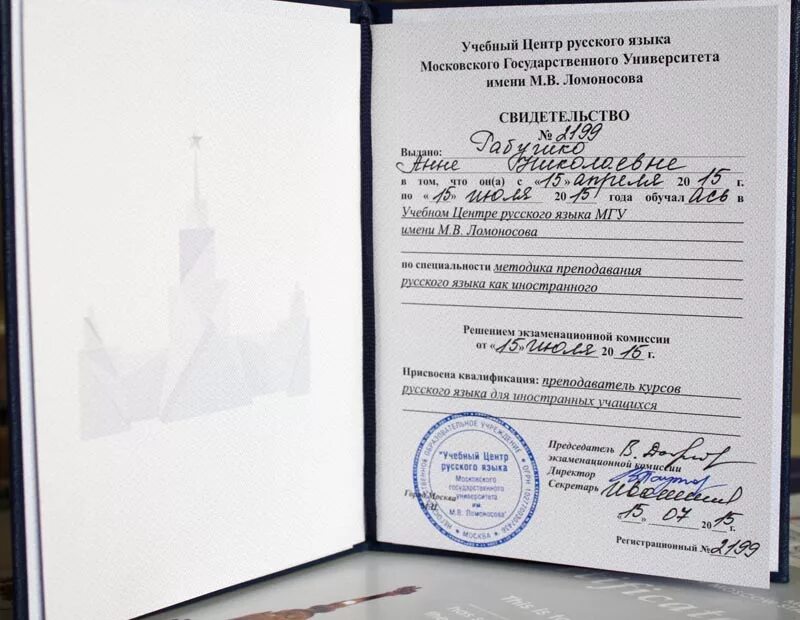 Учебный Центр русского языка
Московского Государственного Университета
имени М.В. Ломоносова
СВИДЕТЕЛЬСТВО
№ 2199
Выдано: Рабушко
Анне Николаевне
в том, что он(а) с «15» апреля 2015 г.
по «15» июля 2015 года обучалась в
Учебном Центре русского языка МГУ
имени М.В. Ломоносова
по специальности методика преподавания
русского языка как иностранного
Решением экзаменационной комиссии
от «15» июля 2015 г.
Присвоена квалификация: преподаватель курсов
русского языка для иностранных учащихся
Председатель
экзаменационной комиссии
Директор
Секретарь
15 » 07 2015 г.
Регистрационный № 2199
Город Москва
М.П.
НЕГОСУДАРСТВЕННОЕ ОБРАЗОВАТЕЛЬНОЕ УЧРЕЖДЕНИЕ
"Учебный Центр
русского языка
Московского
государственного
университета
им.
М.В. Ломоносова"
МОСКВА
This is